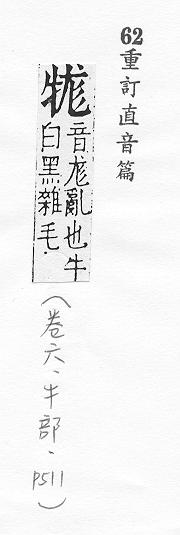 62重訂直音篇
牻音尨亂也牛
白黑雜毛.
(卷六、牛部、P511)